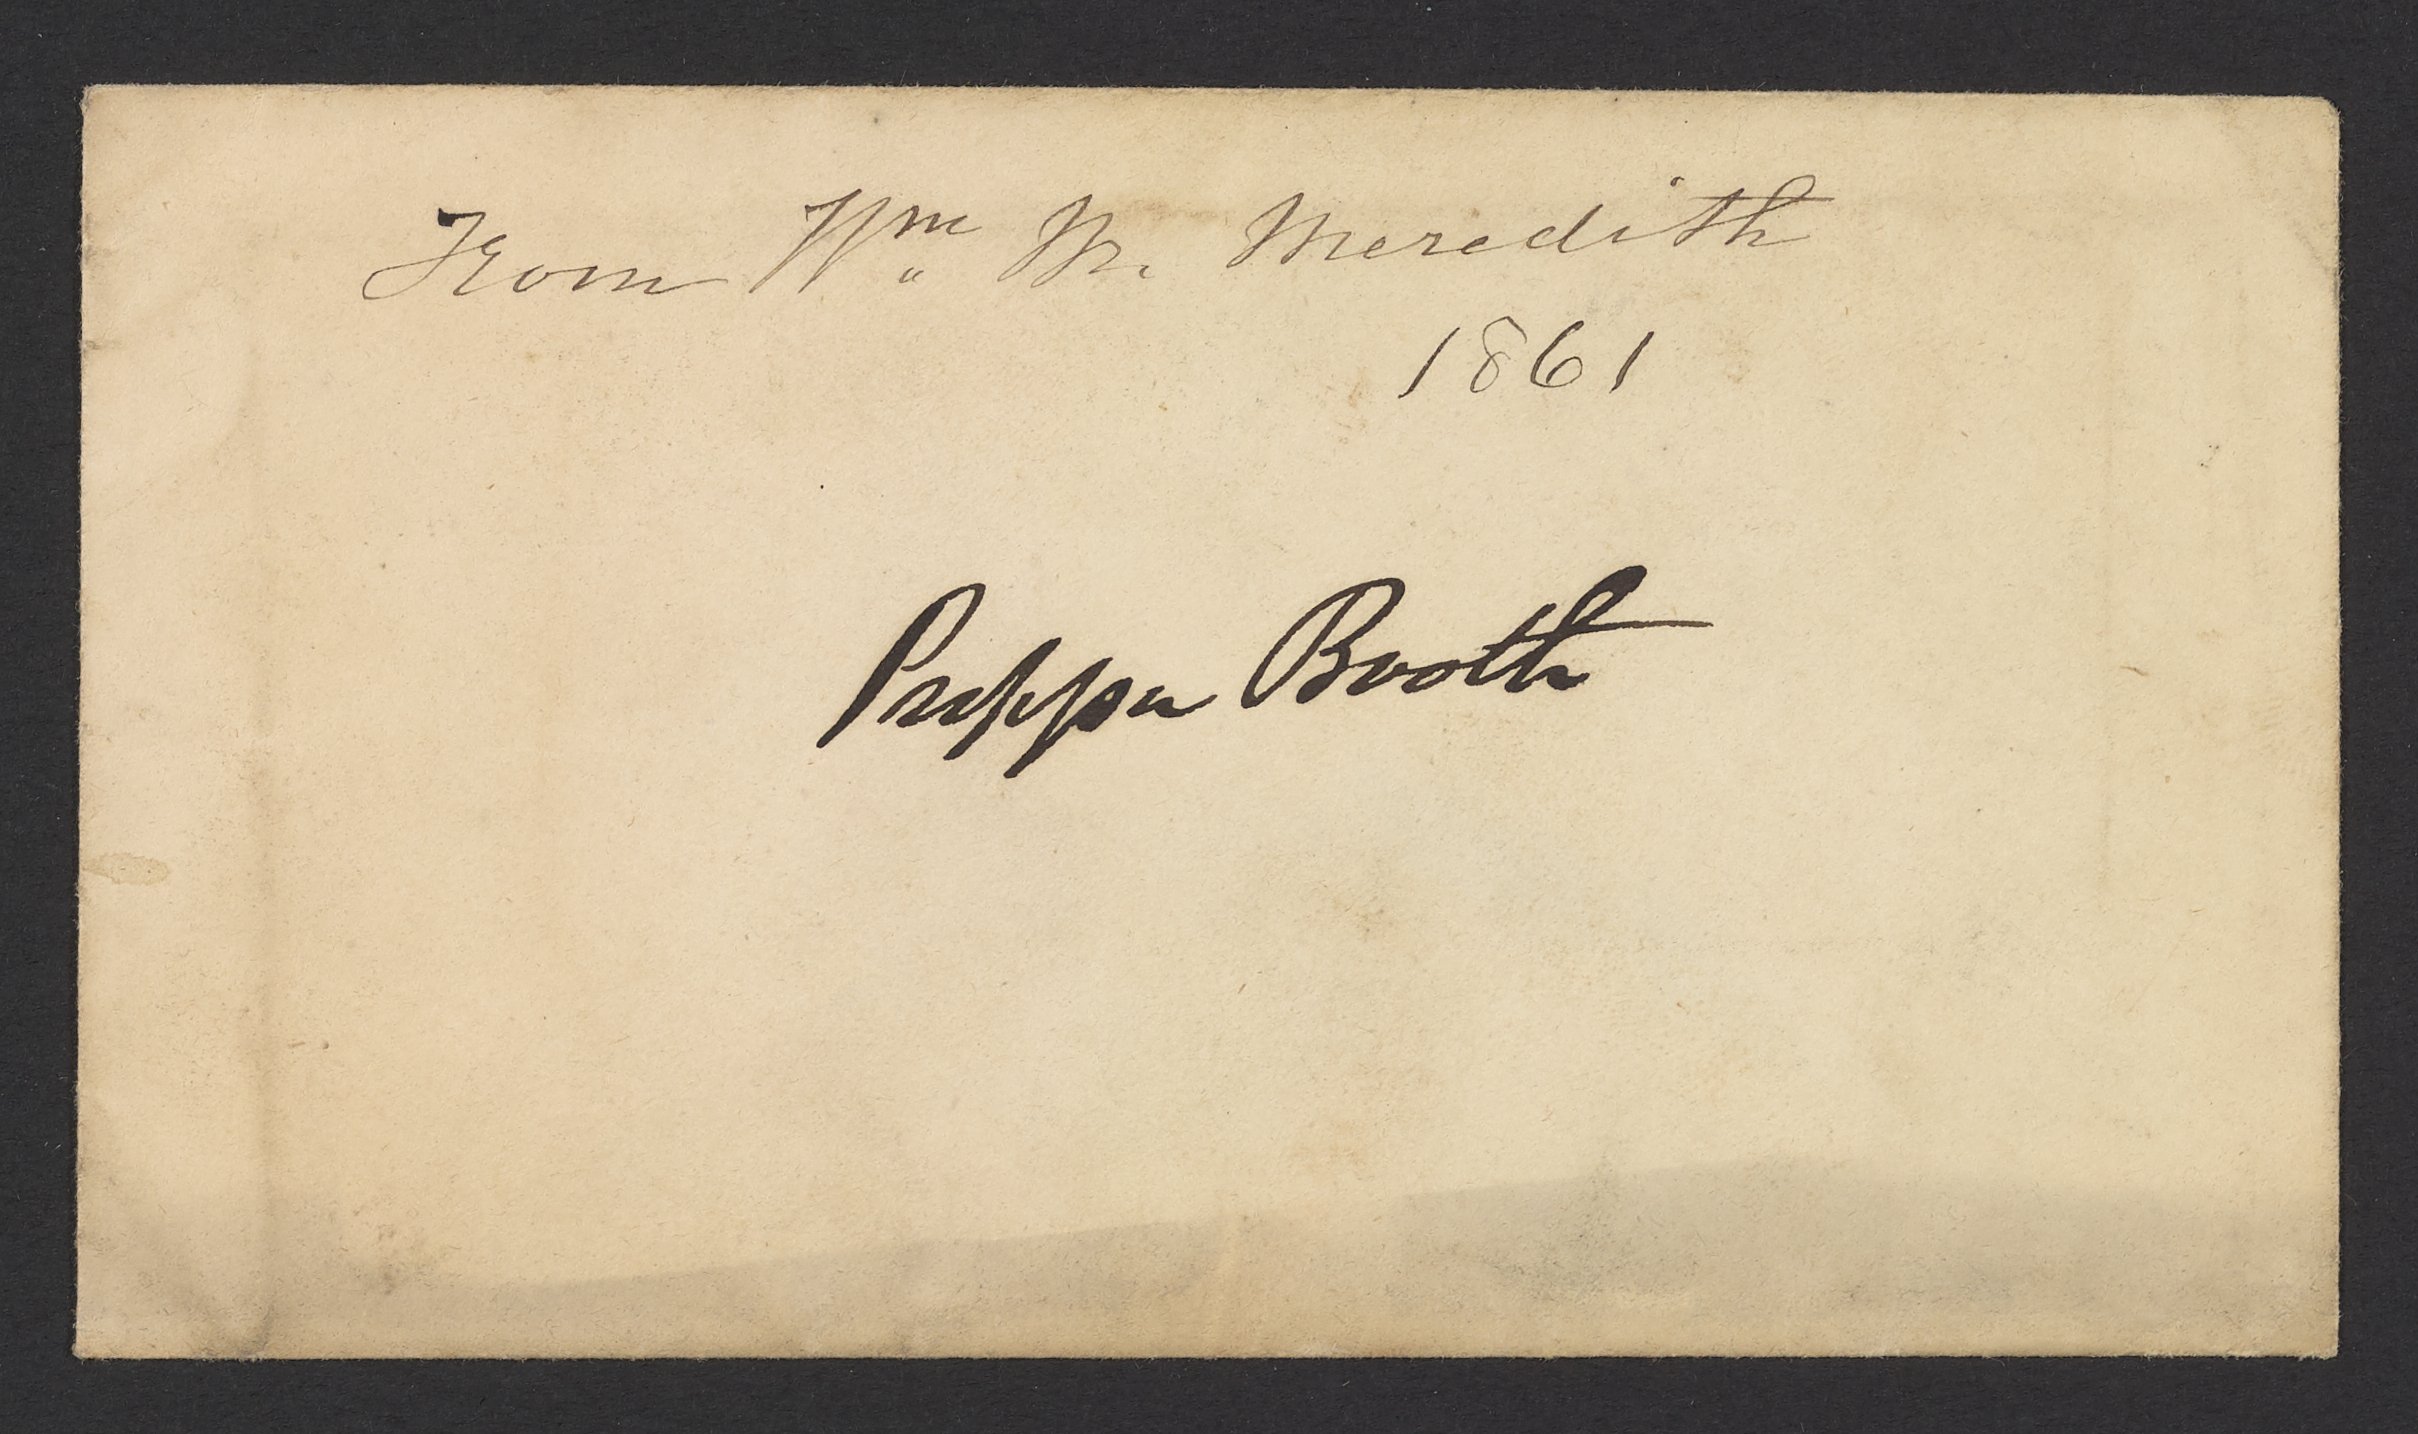 From Wm. M. Meredith
1861
Booth